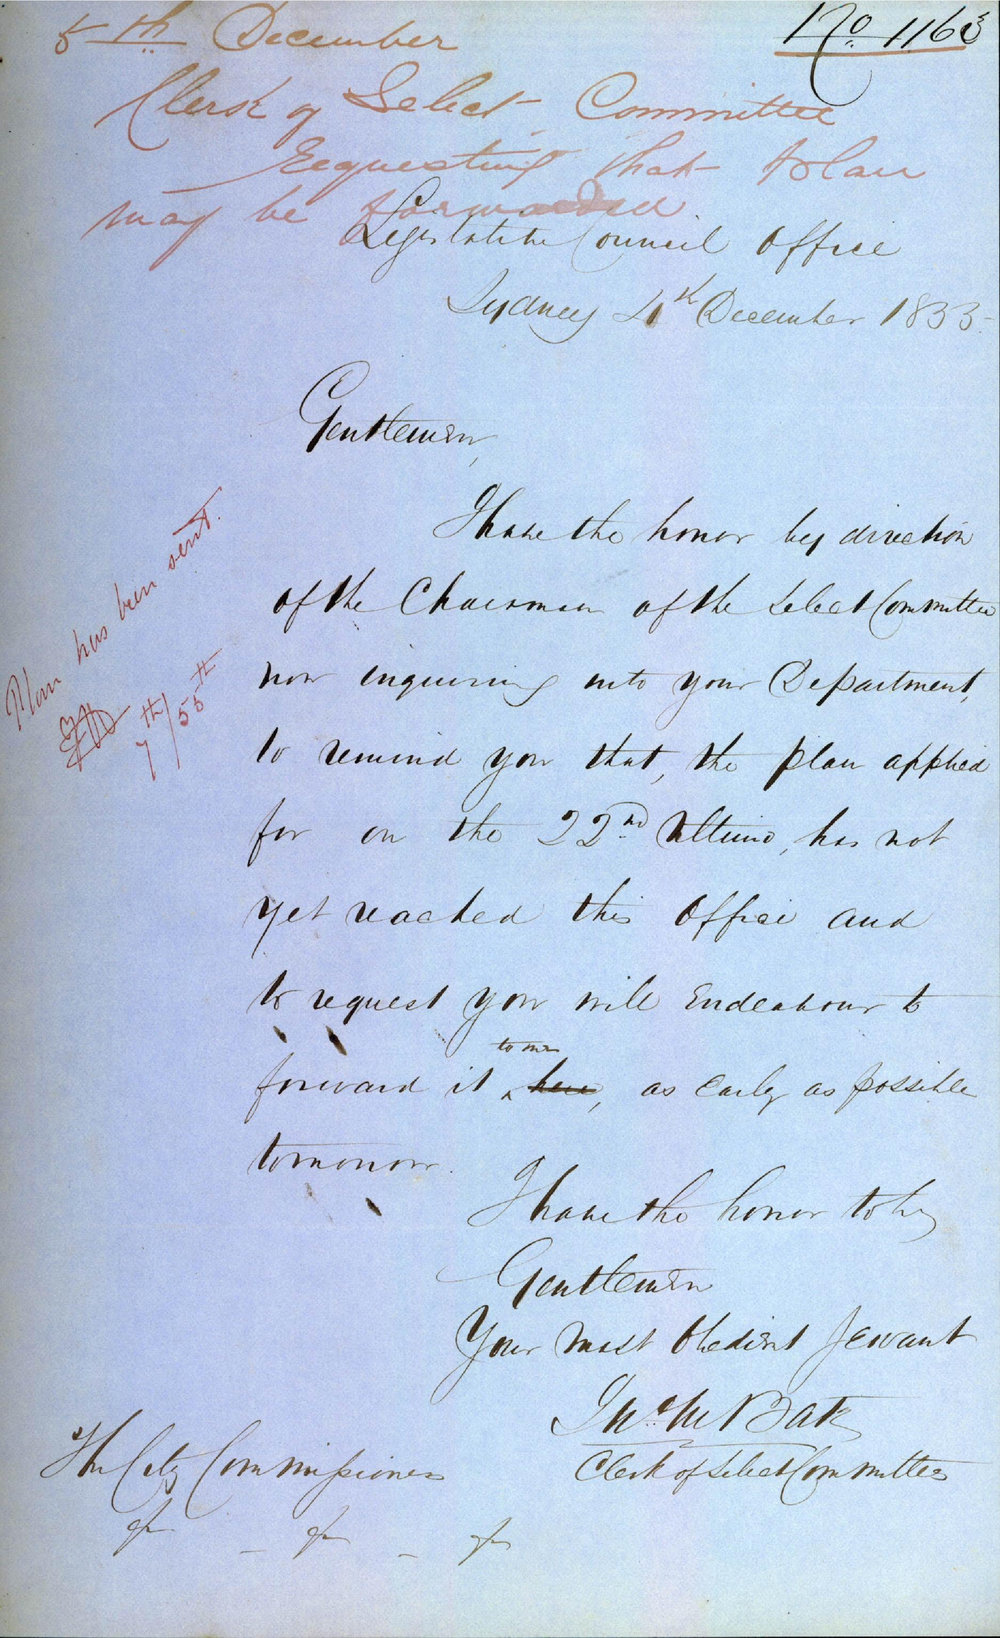 5th December
No. 1163
Clerk of Select Committee
Requesting that Plan
may be forwarded
Legislative Council Office
Sydney 4th December 1855.
Gentlemen,
I have the honor by direction
of the Chairman of the Select Committee
now inquiring into your Department,
to remind you that, the plan applied
for on the 22nd Ultimo, has not
yet reached this Office and
to request you will Endeavour to
to me
forward it ^ here, as early as possible
tomorrow.
Plan has been sent.
7th/55th
I have the honor to be,
Gentlemen
Your most Obedient Servant
Jno. McBate
Clerk of Select Committee
The City Commissioners